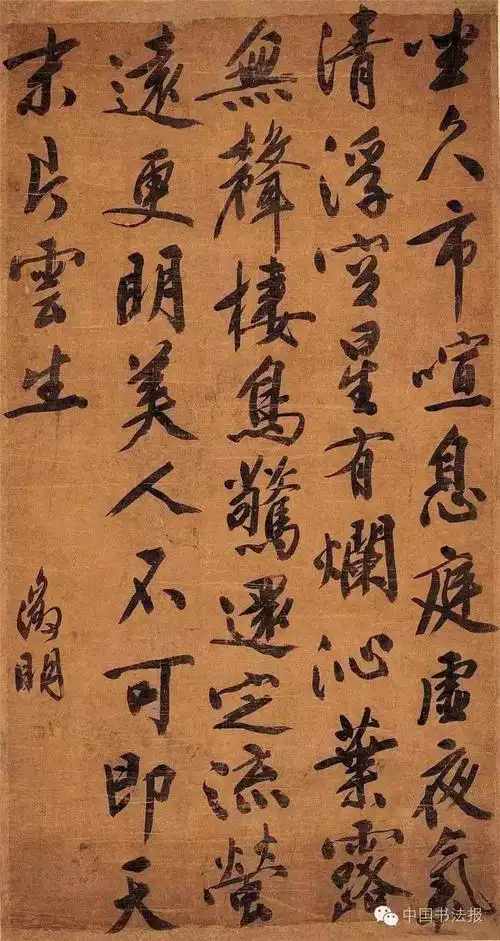 坐久市喧息庭虛夜氣
清浮空星有爛沁葉露
無聲棲鳥驚還定流螢
遠更明美人不可即天
末片雲生
徵明
中国书法报